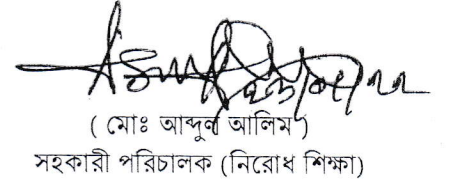 ( মোঃ আব্দুল আলিম )
সহকারী পরিচালক (নিরোধ শিক্ষা)